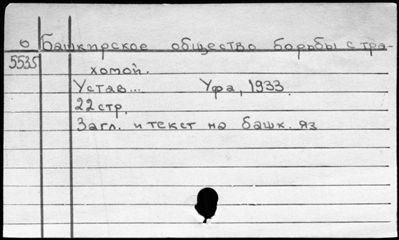 О Башкирское общество борьбы с тра-
5535 хомой.
Устав... Уфа, 1933.
22 стр.
Загл. и текст на башк. яз